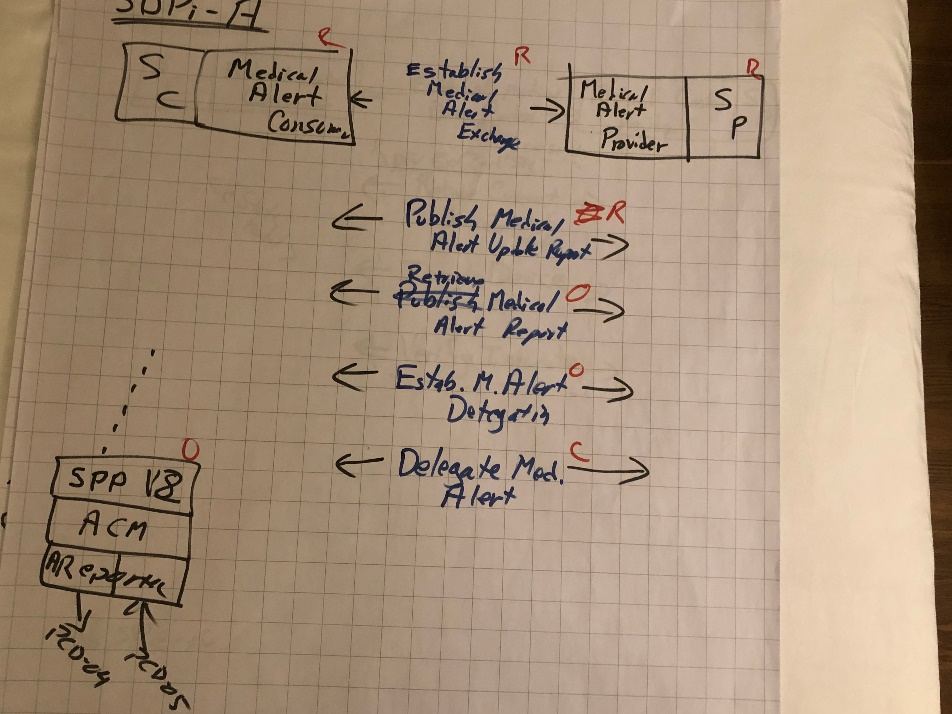 SDPi-A
S C
Medical Alert Consumer
R
Establish Medical Alert Exchange
R
Medical Alert Provider
R
S P
Publish Medical R
Alert Update Report
Retrieve
Publish Medical O
Alert Report
Estab. M. Alert O
Delegatin
Delegate Med. C
Alert
O
SPP V8
ACM
AReporter
PCD-04
PCD-05